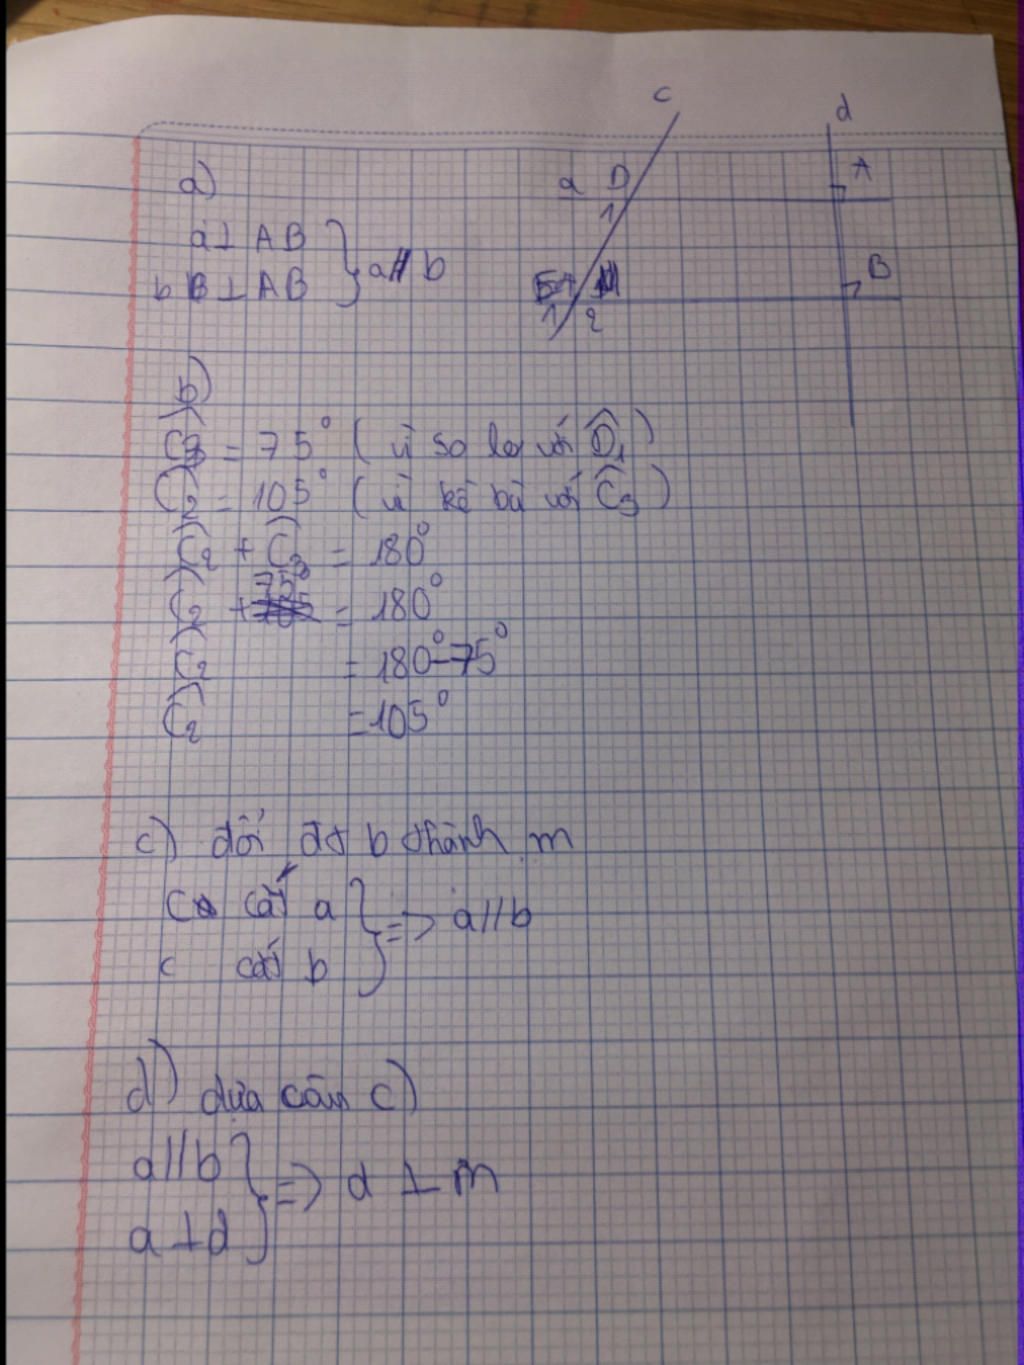 c
d
a)
a D
A
1
a ⊥ AB
b ⊥ AB
a // b
B
1 2
b)
C3 = 75° (vì so le với D̂1)
Ĉ2 = 105° (vì kề bù với Ĉ3)
Ĉ2 + Ĉ3 = 180°
Ĉ2 + 75° = 180°
Ĉ2 = 180° - 75°
Ĉ2 = 105°
c) đổi đt b thành m
c cắt a
c cắt b
=> a // b
d) dựa câu c)
a // b
a ⊥ d
=> d ⊥ m